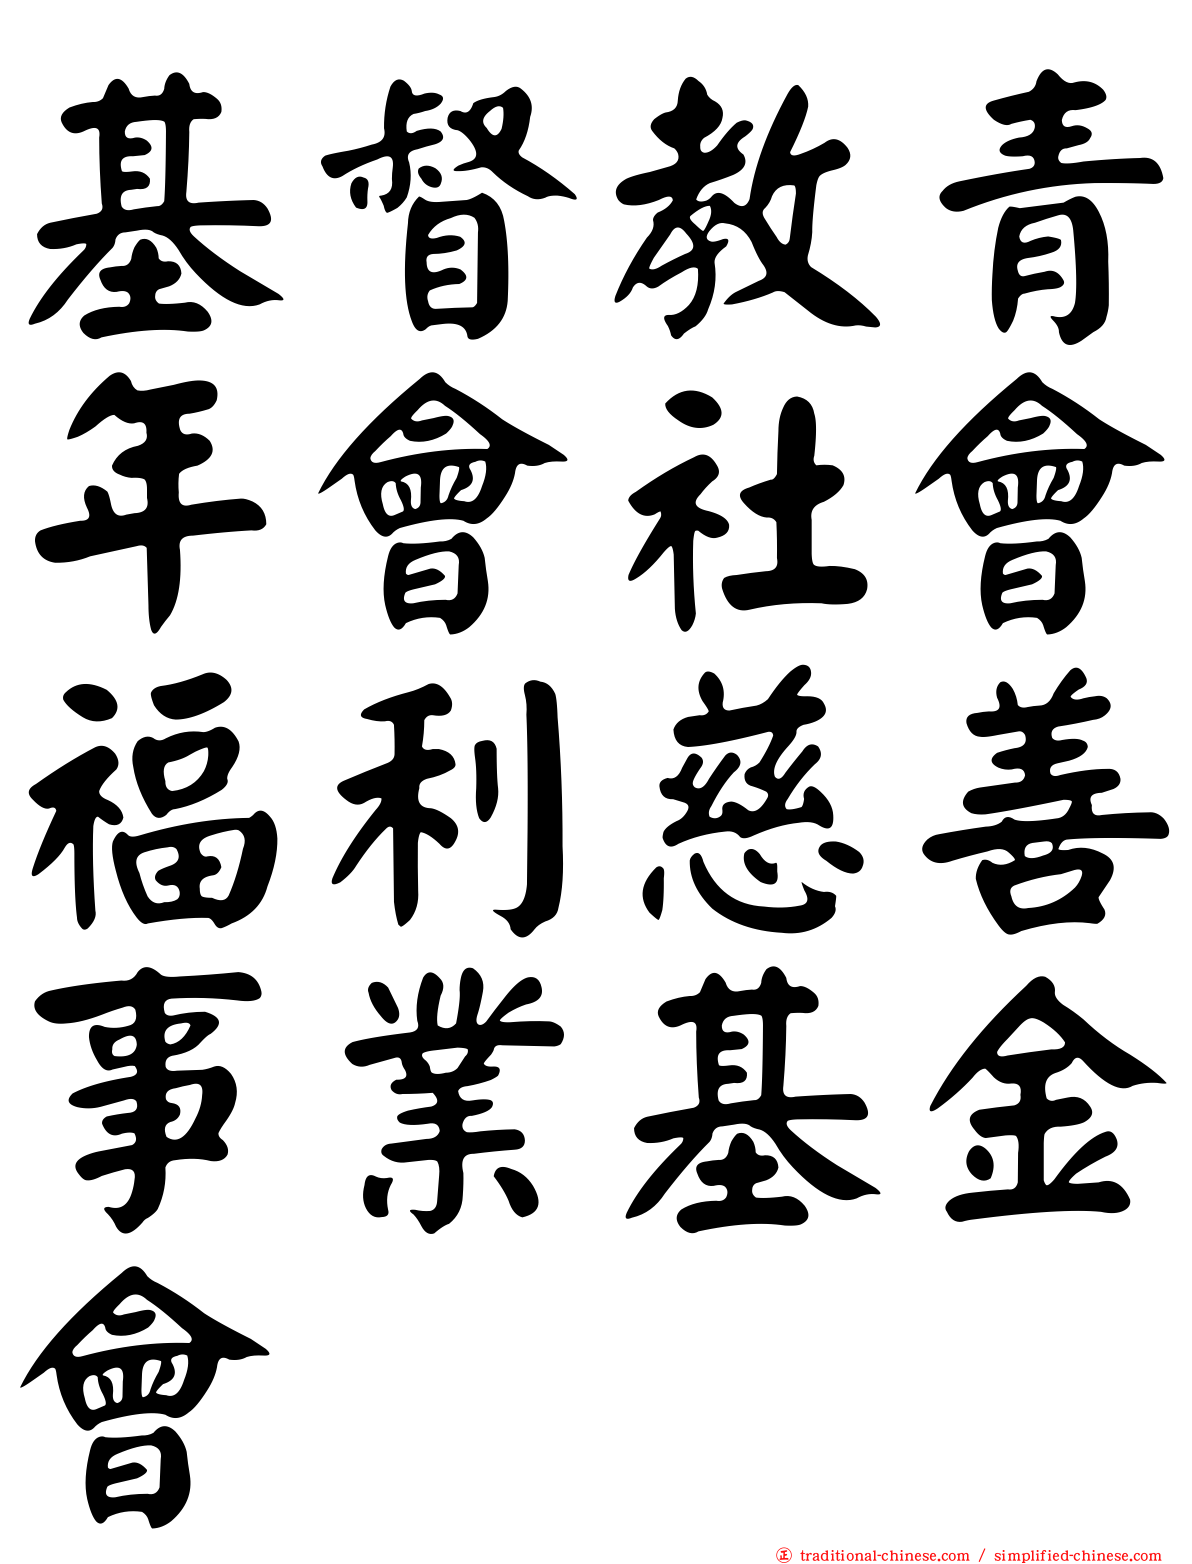 基督教青
年會社會
福利慈善
事業基金
會
㊣ traditional-chinese.com / simplified-chinese.com